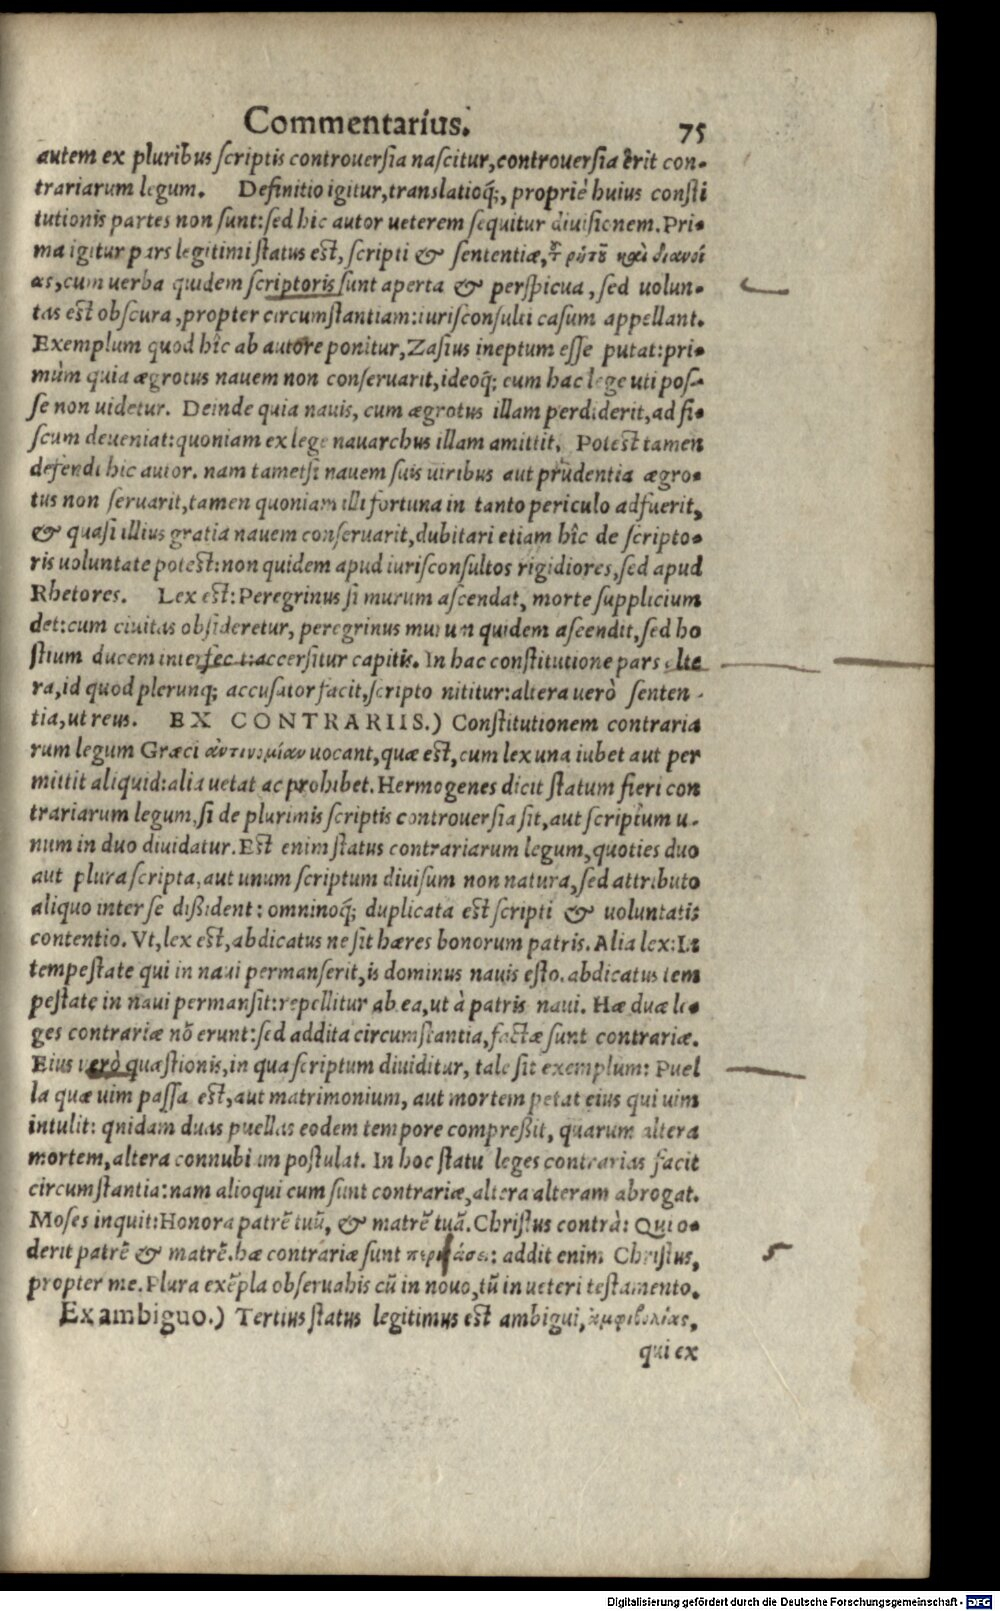 Commentarius. 75
autem ex pluribus scriptis controuersia nascitur, controuersia erit con-
trariarum legum. Definitio igitur, translatioq́;, propriè huius consti
tutionis partes non sunt: sed hic autor ueterem sequitur diuisionem. Pri-
ma igitur pars legitimi status est, scripti & sententiæ, ῥητοῦ καὶ διανοί
ας, cum uerba quidem scriptoris sunt aperta & perspicua, sed uolun-
tas est obscura, propter circumstantiam: iurisconsulti casum appellant.
Exemplum quod hîc ab autore ponitur, Zasius ineptum esse putat: pri-
mùm quia ægrotus nauem non conseruarit, ideoq́; eum hac lege uti pos-
se non uidetur. Deinde quia nauis, cum ægrotus illam perdiderit, ad fi-
scum deueniat: quoniam ex lege nauarchus illam amittit. Potest tamen
defendi hic autor. nam tametsi nauem suis uiribus aut prudentia ægro-
tus non seruarit, tamen quoniam illi fortuna in tanto periculo adfuerit,
& quasi illius gratia nauem conseruarit, dubitari etiam hîc de scripto-
ris uoluntate potest: non quidem apud iurisconsultos rigidiores, sed apud
Rhetores. Lex est: Peregrinus si murum ascendat, morte supplicium
det: cum ciuitas obsideretur, peregrinus murum quidem ascendit, sed ho
stium ducem interfecit: accersitur capitis. In hac constitutione pars alte
ra, id quod plerunq; accusator facit, scripto nititur: altera uerò senten-
tia, ut reus. EX CONTRARIIS.) Constitutionem contraria
rum legum Græci ἀντινομίαν uocant, quæ est, cum lex una iubet aut per
mittit aliquid: alia uetat ac prohibet. Hermogenes dicit statum fieri con
trariarum legum, si de plurimis scriptis controuersia sit, aut scriptum u-
num in duo diuidatur. Est enim status contrariarum legum, quoties duo
aut plura scripta, aut unum scriptum diuisum non natura, sed attributo
aliquo inter se dißident: omninoq́; duplicata est scripti & uoluntatis
contentio. Vt, lex est, abdicatus ne sit hæres bonorum patris. Alia lex: In
tempestate qui in naui permanserit, is dominus nauis esto. abdicatus tem
pestate in naui permansit: repellitur ab ea, ut à patris naui. Hæ duæ le-
ges contrariæ nõ erunt: sed addita circumstantia, factæ sunt contrariæ.
Eius uerò quæstionis, in qua scriptum diuiditur, tale sit exemplum: Puel
la quæ uim passa est, aut matrimonium, aut mortem petat eius qui uim
intulit: qnidam duas puellas eodem tempore compreßit, quarum altera
mortem, altera connubium postulat. In hoc statu leges contrarias facit
circumstantia: nam alioqui cum sunt contrariæ, altera alteram abrogat.
Moses inquit: Honora patrẽ tuũ, & matrẽ tuã. Christus contrà: Qui o-
derit patrẽ & matrẽ. hæ contrariæ sunt : addit enim Christus,
propter me. Plura exẽpla obseruabis cũ in nouo, tũ in ueteri testamento.
Ex ambiguo.) Tertius status legitimus est ambigui, ἀμφιβολίας,
qui ex
Digitalisierung gefördert durch die Deutsche Forschungsgemeinschaft - DFG